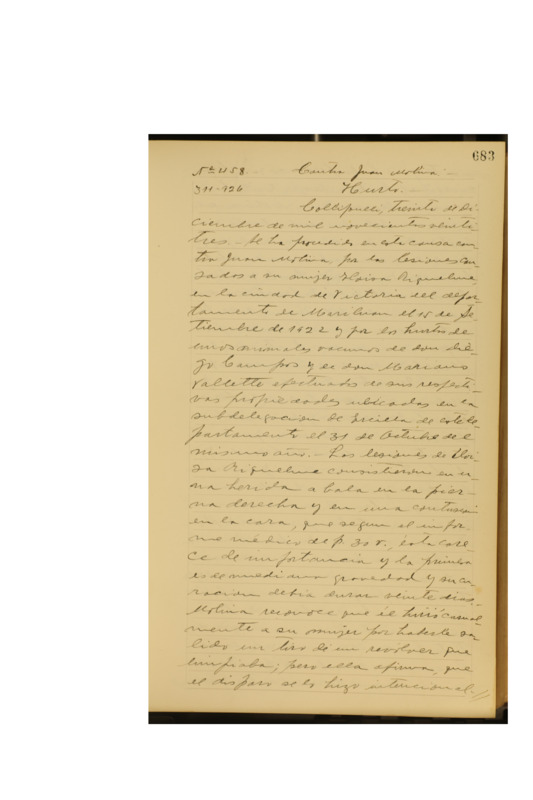 683
Nº 1158. Contra Juan Molina
311-926 Hurto.
Collipulli, treinta de Di-
ciembre de mil novecientos veinti-
tres. Se ha procedido en esta causa con-
tra Juan Molina, por las lesiones cau-
sados a su mujer Eloisa Riquelme,
en la ciudad de Victoria del depar-
tamento de Mariluan el 15 de Se-
tiembre de 1922 y por los hurtos de
unos animales vacunos de don Die-
go Campos y de don Mariano
Valletto efectuados de sus respecti-
vas propiedades ubicadas en la
subdelegacion de Ercilla de este de-
partamento el 31 de Octubre del
mismo año. - Las lesiones de Eloi-
sa Riquelme consistieron en u-
na herida a bala en la pier-
na derecha y en una contusion
en la cara, que segun el infor-
me médico de f. 30 v., esta care-
ce de importancia y la primera
es de mediana gravedad y su cu-
racion debia durar veinte dias.
Molina reconoce que él hirió casual-
mente a su mujer por haberle sa-
lido un tiro de un revolver que
limpiaba; pero ella afirma, que
el disparo se lo hizo intencional-